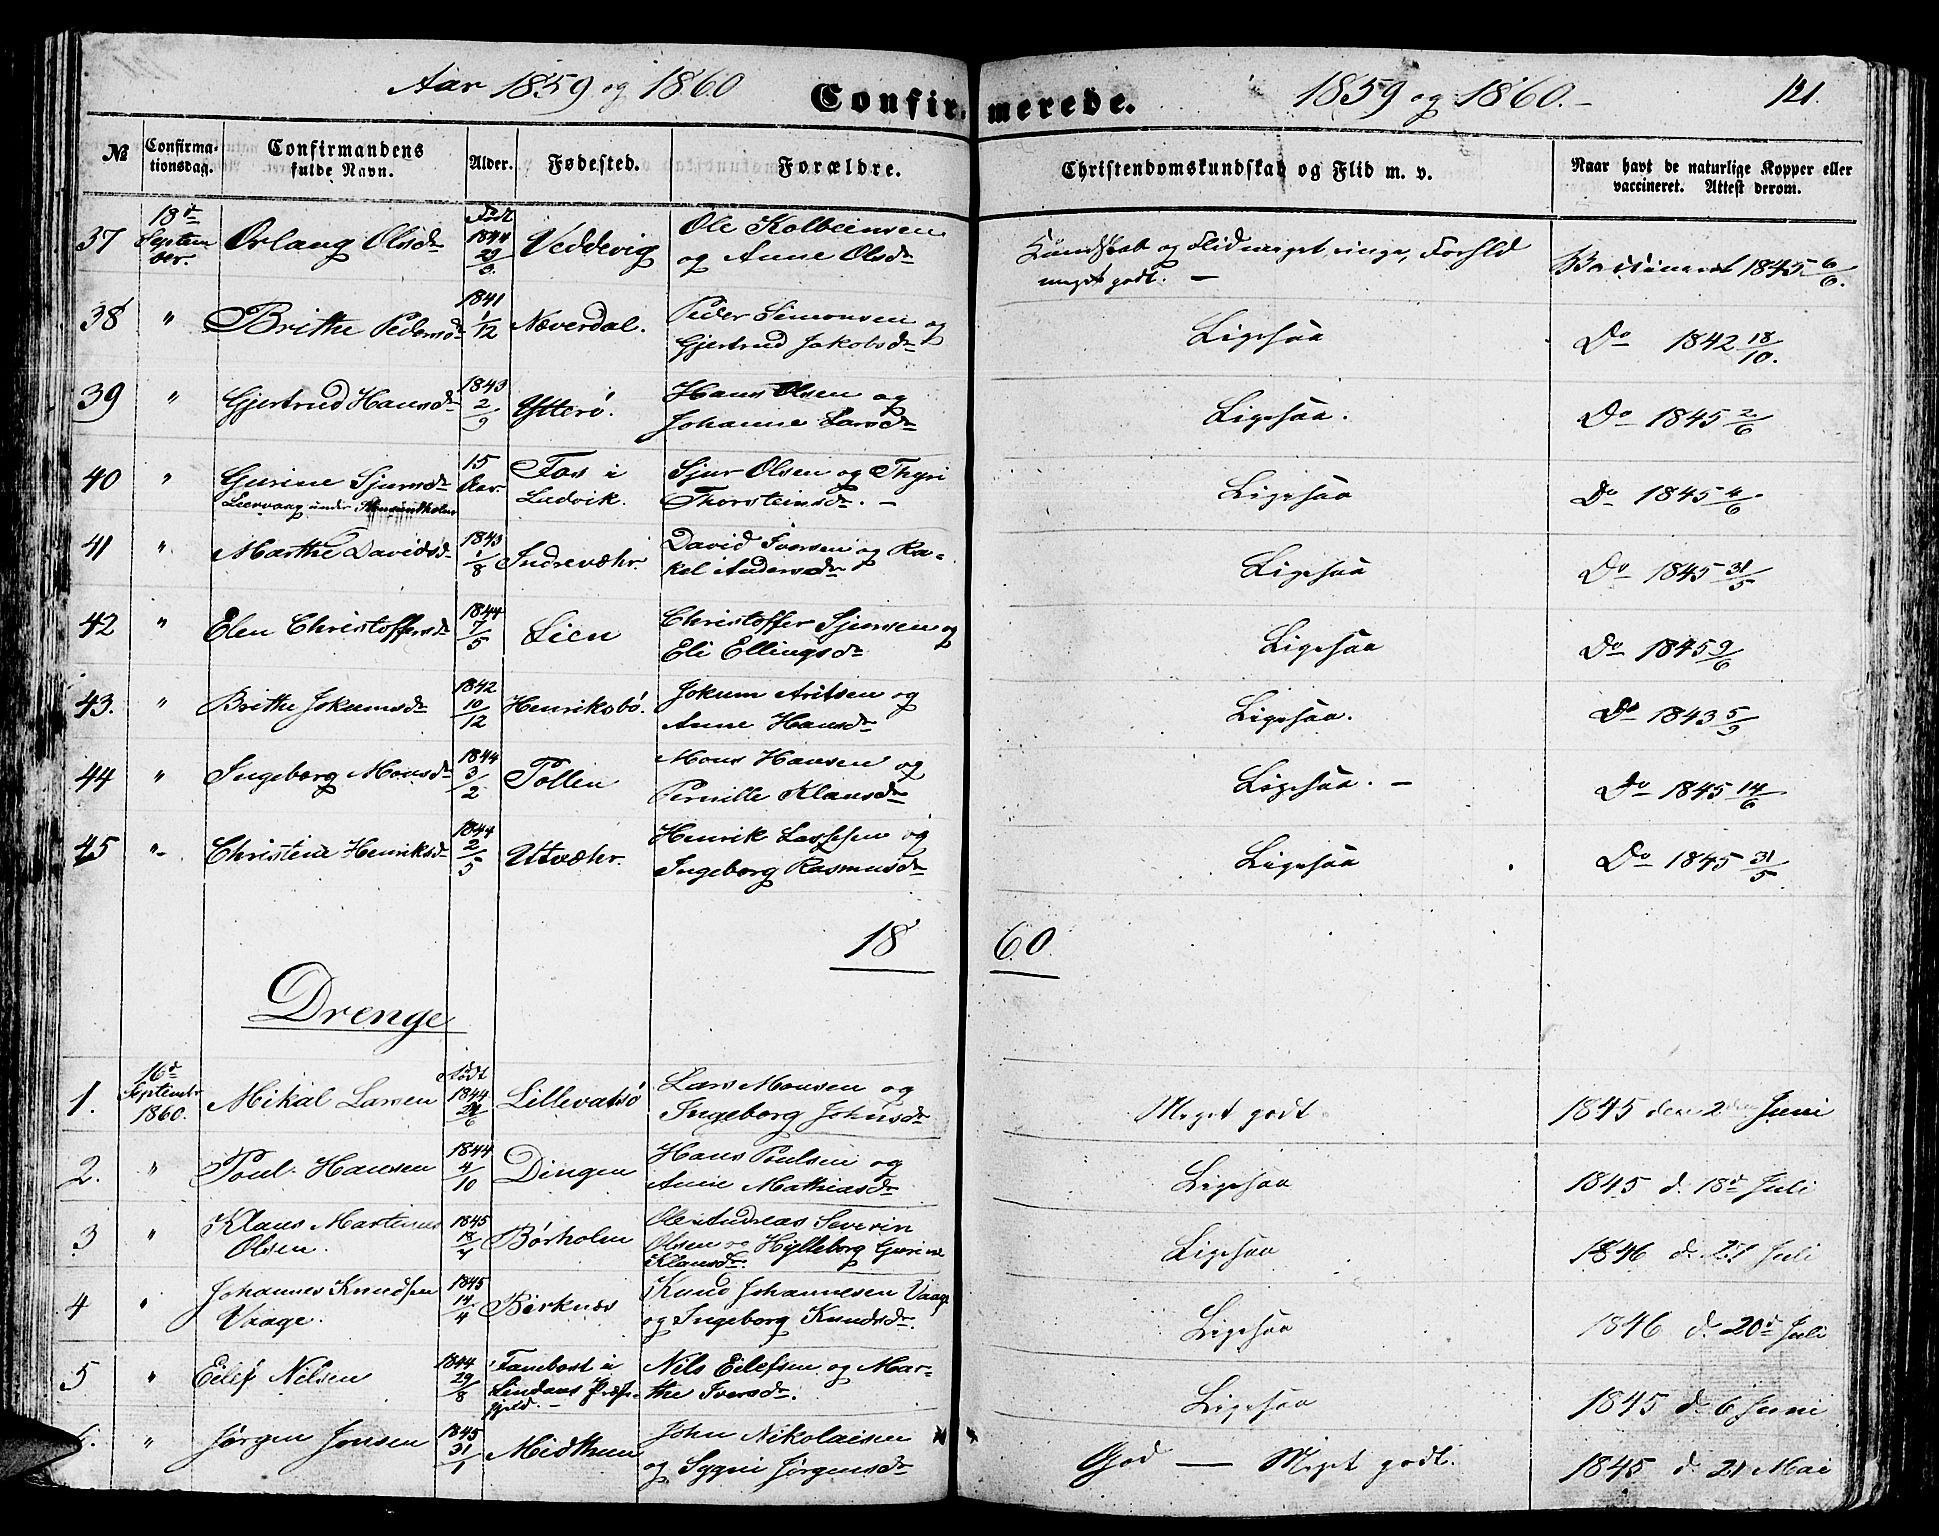 Aar 1859 og 1860
Confirmerede.
1859 og 1860.-
121.
№
Confirma-
tionsdag.
Confirmandens
fulde Navn.
Alder.
Fødested.
Forældre.
Christendomskundskab og Flid m. v.
Naar havt de naturlige Kopper eller
vaccineret. Attest derom.
37 18de Septem ber. Orlaug Olsdr Født 1844 Veddevig Ole Kolbeinsen
og Anne Olsdr
Kundskab og Flid meget ringe, Forhld
meget godt. —
Vaccineret 1845 6/6.
38 " Brithe Pedersdr 1841 1/12 Næverdal. Peder Simonsen og
Gjertrud Jakobsdr
Ligesaa
Do 1842 18/10.
39 " Gjertrud Hansdr 1843 2/9 Ytterö. Hans Olsen og
Johanne Larsdr
Ligesaa.
Do 1845 2/6
40 " Gurine Sjursdr 15 Aar. Fos i
Ludvik.
Sjur Olsen og Thyri
Thorsteinsdr. —
Leervaag under
Ligesaa
Do 1845 4/6.
41 " Marthe Davidsdr 1843 1/8 Indrevæhr David Iversen og Ra-
kel Andersdr
Ligesaa
Do 1845 31/5
42 " Elen Christoffersdr 1844 7/5 Lien Christoffer Sjursen og
Eli Ellingsdr
Ligesaa
Do 1845 9/6
43. " Brithe Jokumsdr 1842 10/12 Henriksbö. Jokum Aritsen og
Anne Hansdr
Ligesaa.
Do 1843 5/9
44 " Ingeborg Monsdr 1844 3/2 Tollen Mons Hansen og
Pernille Klausdr
Ligesaa. —
Do 1845 14/6
45 " Christine Henriksdr 1844 2/5 Utvæhr. Henrik Lassesen og
Ingeborg Rasmusdr
Ligesaa
Do 1845 31/5.
18 60.
Drenge
1. 16d Septembr 1860. Mikal Larsen Født 1844 Lillevatsö Lars Monsen og
Ingeborg Johnsdr
Meget godt
1845 den 2den Juni
2. " Poul Hansen 1844 4/10 Dingen Hans Poulsen og
Anne Mathiasdr
Ligesaa
1845 d. 18d Juli
3 " Klaus Martinus
Olsen.
1845 18/4 Börholm Ole Andreas Severin
Olsen og Hylleborg Gurine
Klausdr.
Ligesaa
1846 d. 27 Juli
4 " Johannes Knudsen
Vaage.
1845 14/4 Birknæs Knud Johannesen Vaage
og Ingeborg Knudsdr.
Ligesaa
1846 d. 20d Juli
5 " Eilef Nilsen 1844 29/8 Fanebost i
Lindaas Præste-
gjeld. —
Nils Eilefsen og Mar-
the Iversdr.
Ligesaa
1845 d. 6 Juni
6. " Jörgen Jonsen 1845 31/1 Midthun John Nikolaisen
og Sygni Jörgensdr
God — Meget godt.
1845 d. 21 Mai